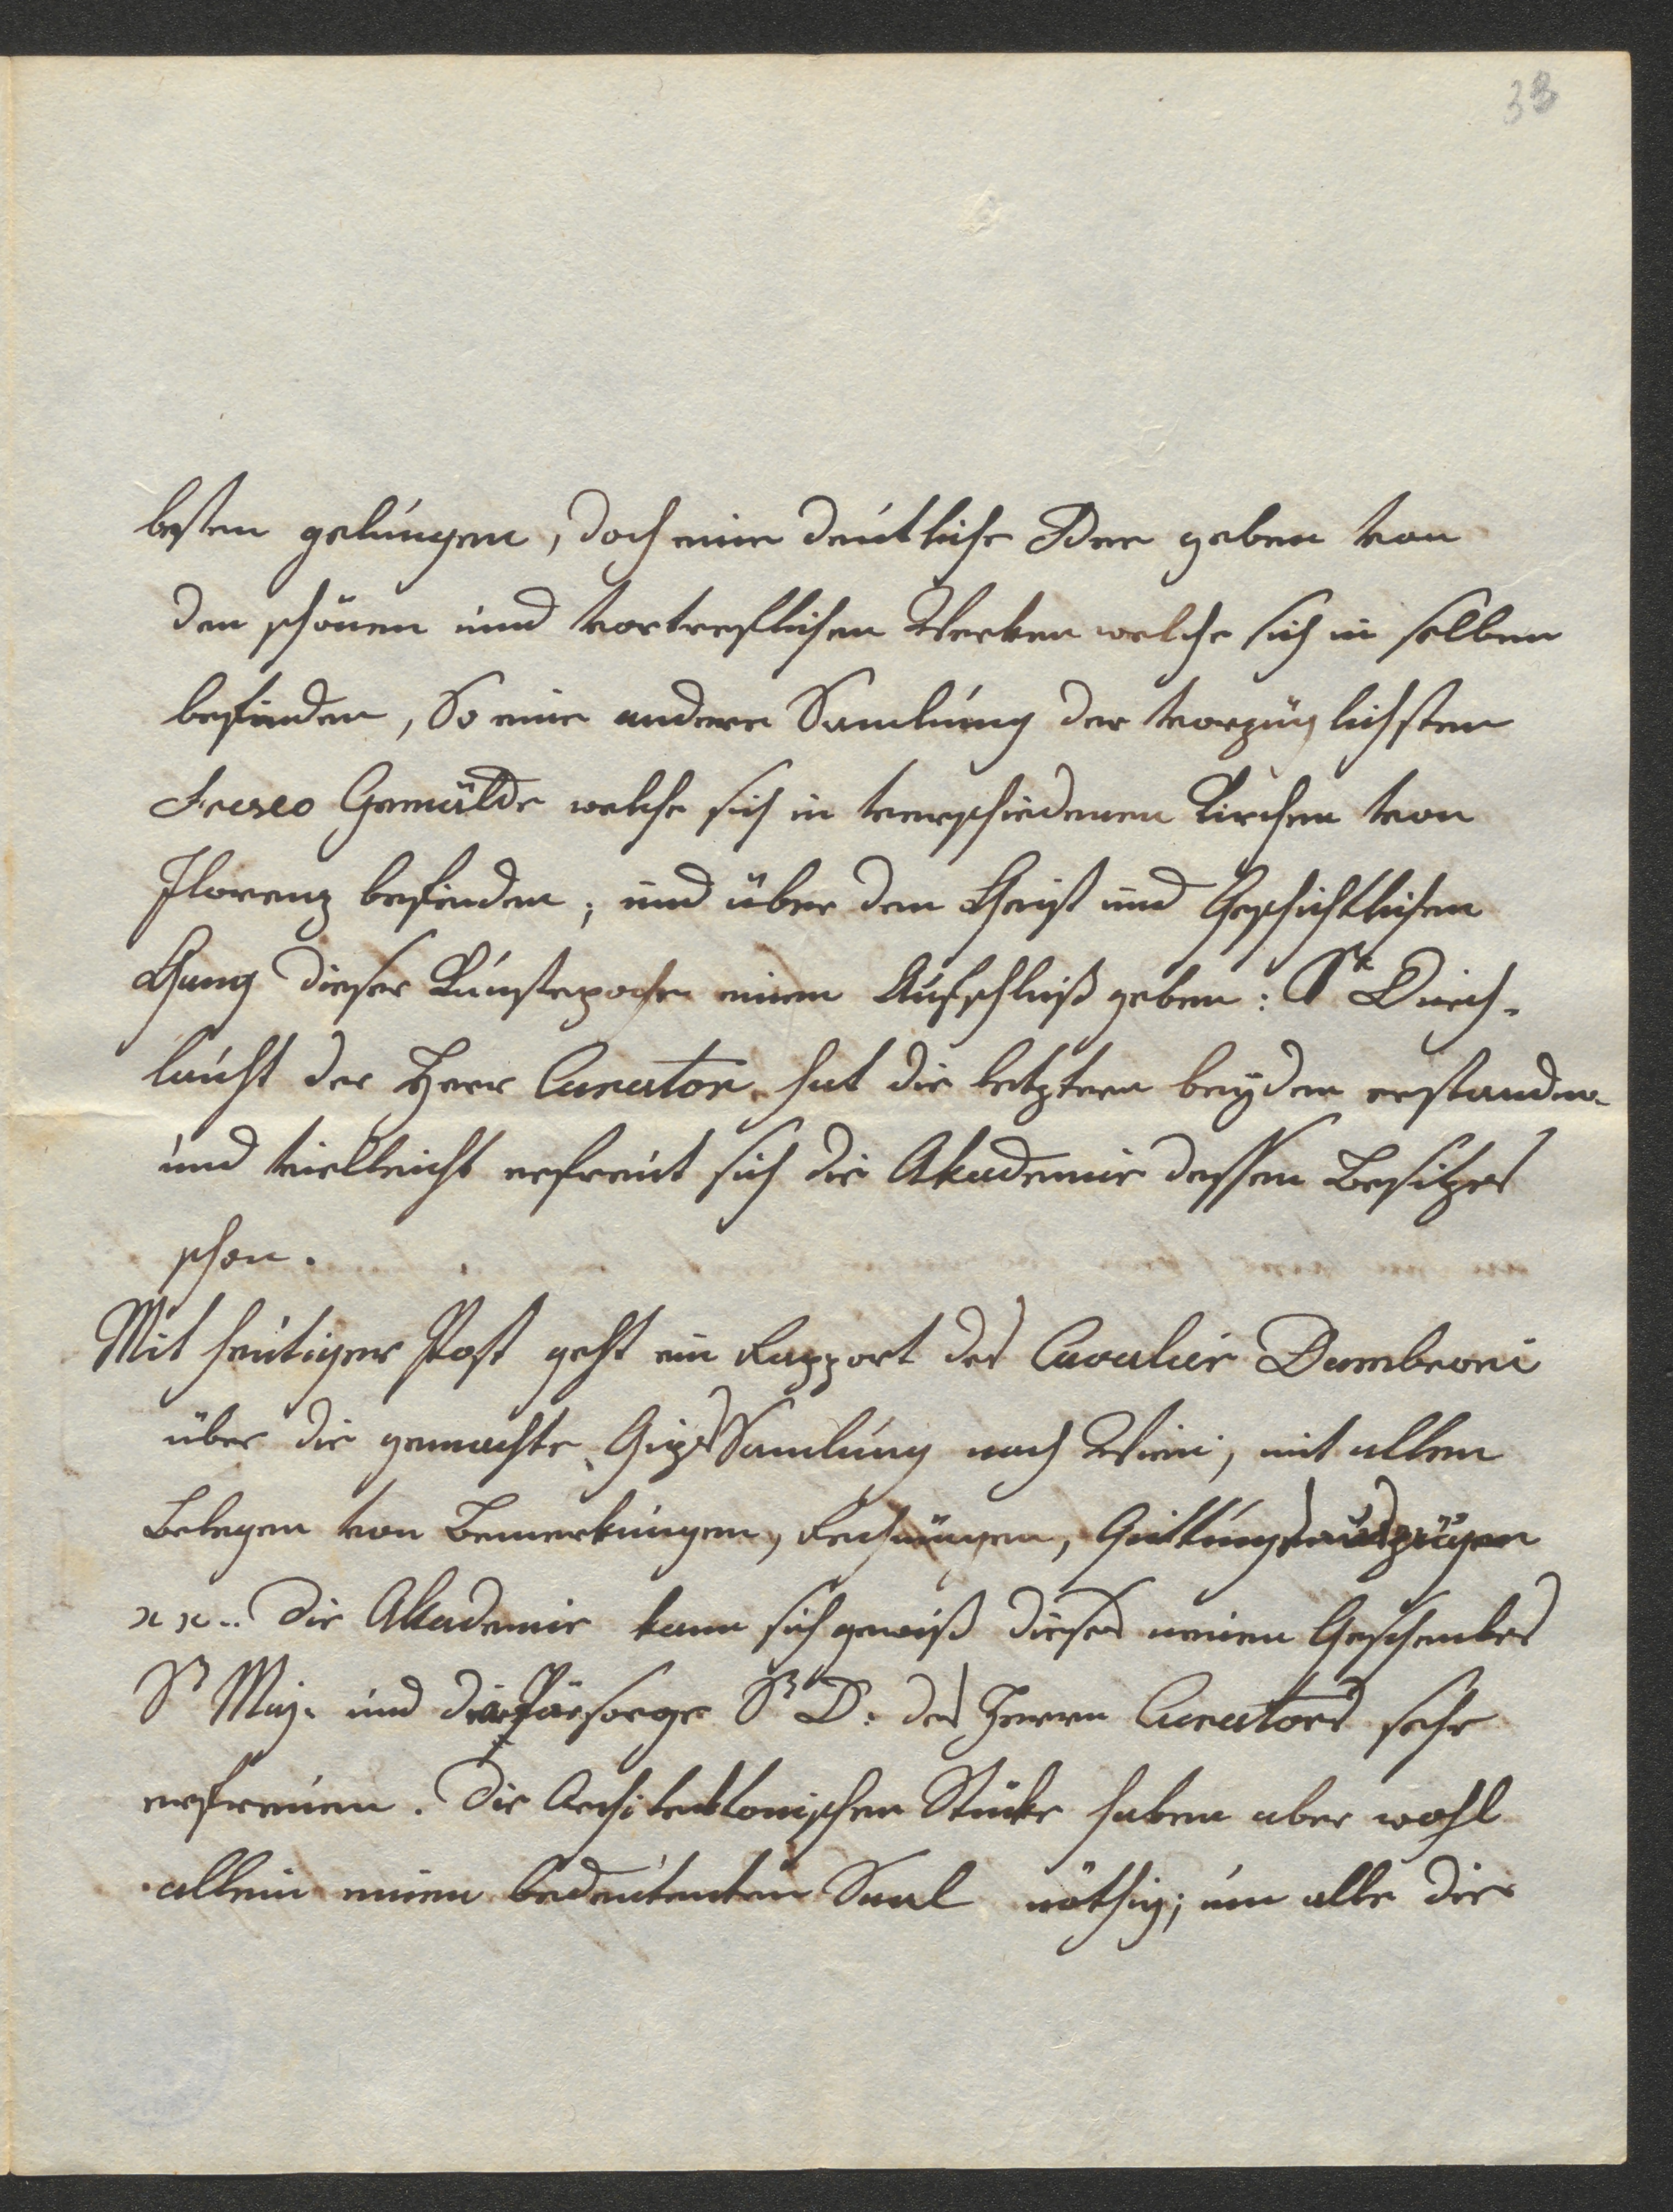 33
besten gelungen, doch eine deutliche Idee geben von
den schönen und vortreflichen Werken welche sich in selben
befinden, So eine andere Samlung der vorzüglichsten
Fresco Gemälde welche sich in verschiedenen Kirchen von
Florenz befinden, und über den Geist und Geschichtlichen
Gang dieser Kunstepoche einen Aufschluß geben: Sr Durch-
laucht der Herr Curator hat die letztern beyden erstanden
und vielleicht erfreut sich die Akademie dessen Besitzes
schon.
Mit heutiger Post geht ein Rapport des Cavalier Dambroni
über die gemachte GipsSamlung nach Wien, mit allen
Belegen von Bemerkungen, Rechnungen, Quittungsauszügen
xx.. Die Akademie kann sich gewiß dieses neuen Geschenkes
Sr Maj. und die Fürsorge Sr D: des Herrn Curators sehr
erfreuen. Die Architecktonischen Stücke haben aber wohl
allein einen bedeutenten Saal nöthig; um alle die